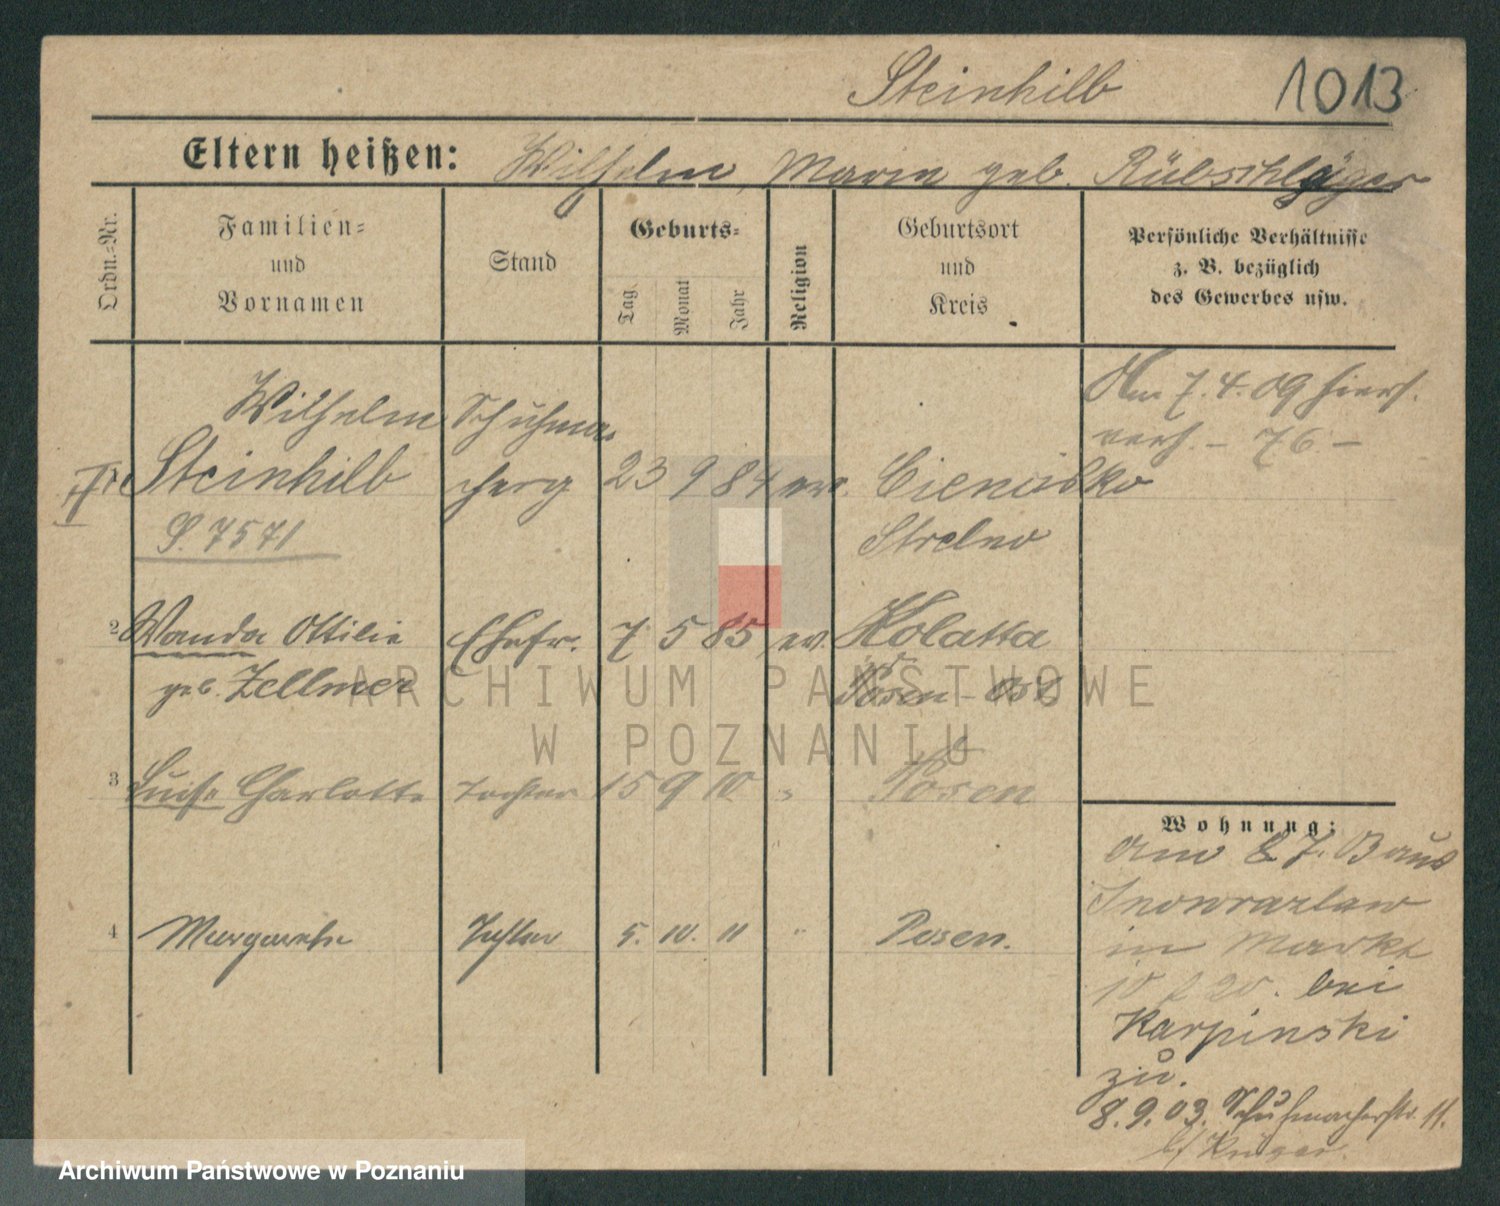 Steinhilb 1013
Eltern heißen: Wilhelm, Marie geb. Rübschläger
Ordn.-Nr.
Familien-
und
Vornamen
Stand
Geburts-
Tag
Monat
Jahr
Religion
Geburtsort
und
Kreis
Persönliche Verhältnisse
z. B. bezüglich
des Gewerbes usw.
Wilhelm Schuhma
Steinhilb cherg 23 9 84 ev. Ciencisko
S. 7571 Strelno
Am 7.4.09 hiers.
verh. - 76 -
2 Wanda Ottilie Ehefr. 7 5 85 ev. Kolatta
geb. Zellmer Posen-Ost
3 Luise Charlotte Tochter 15 9 10 " Posen
4 Margarethe Tochter 5. 10. 11 " Posen.
Wohnung:
am 7. Baus
Inowrazlaw
in Markt
bei
Karpinski
zu.
8.9.03. Schuhmacherstr. 11.
b/ Krüger.
ARCHIWUM PAŃSTWOWE
W POZNANIU
Archiwum Państwowe w Poznaniu